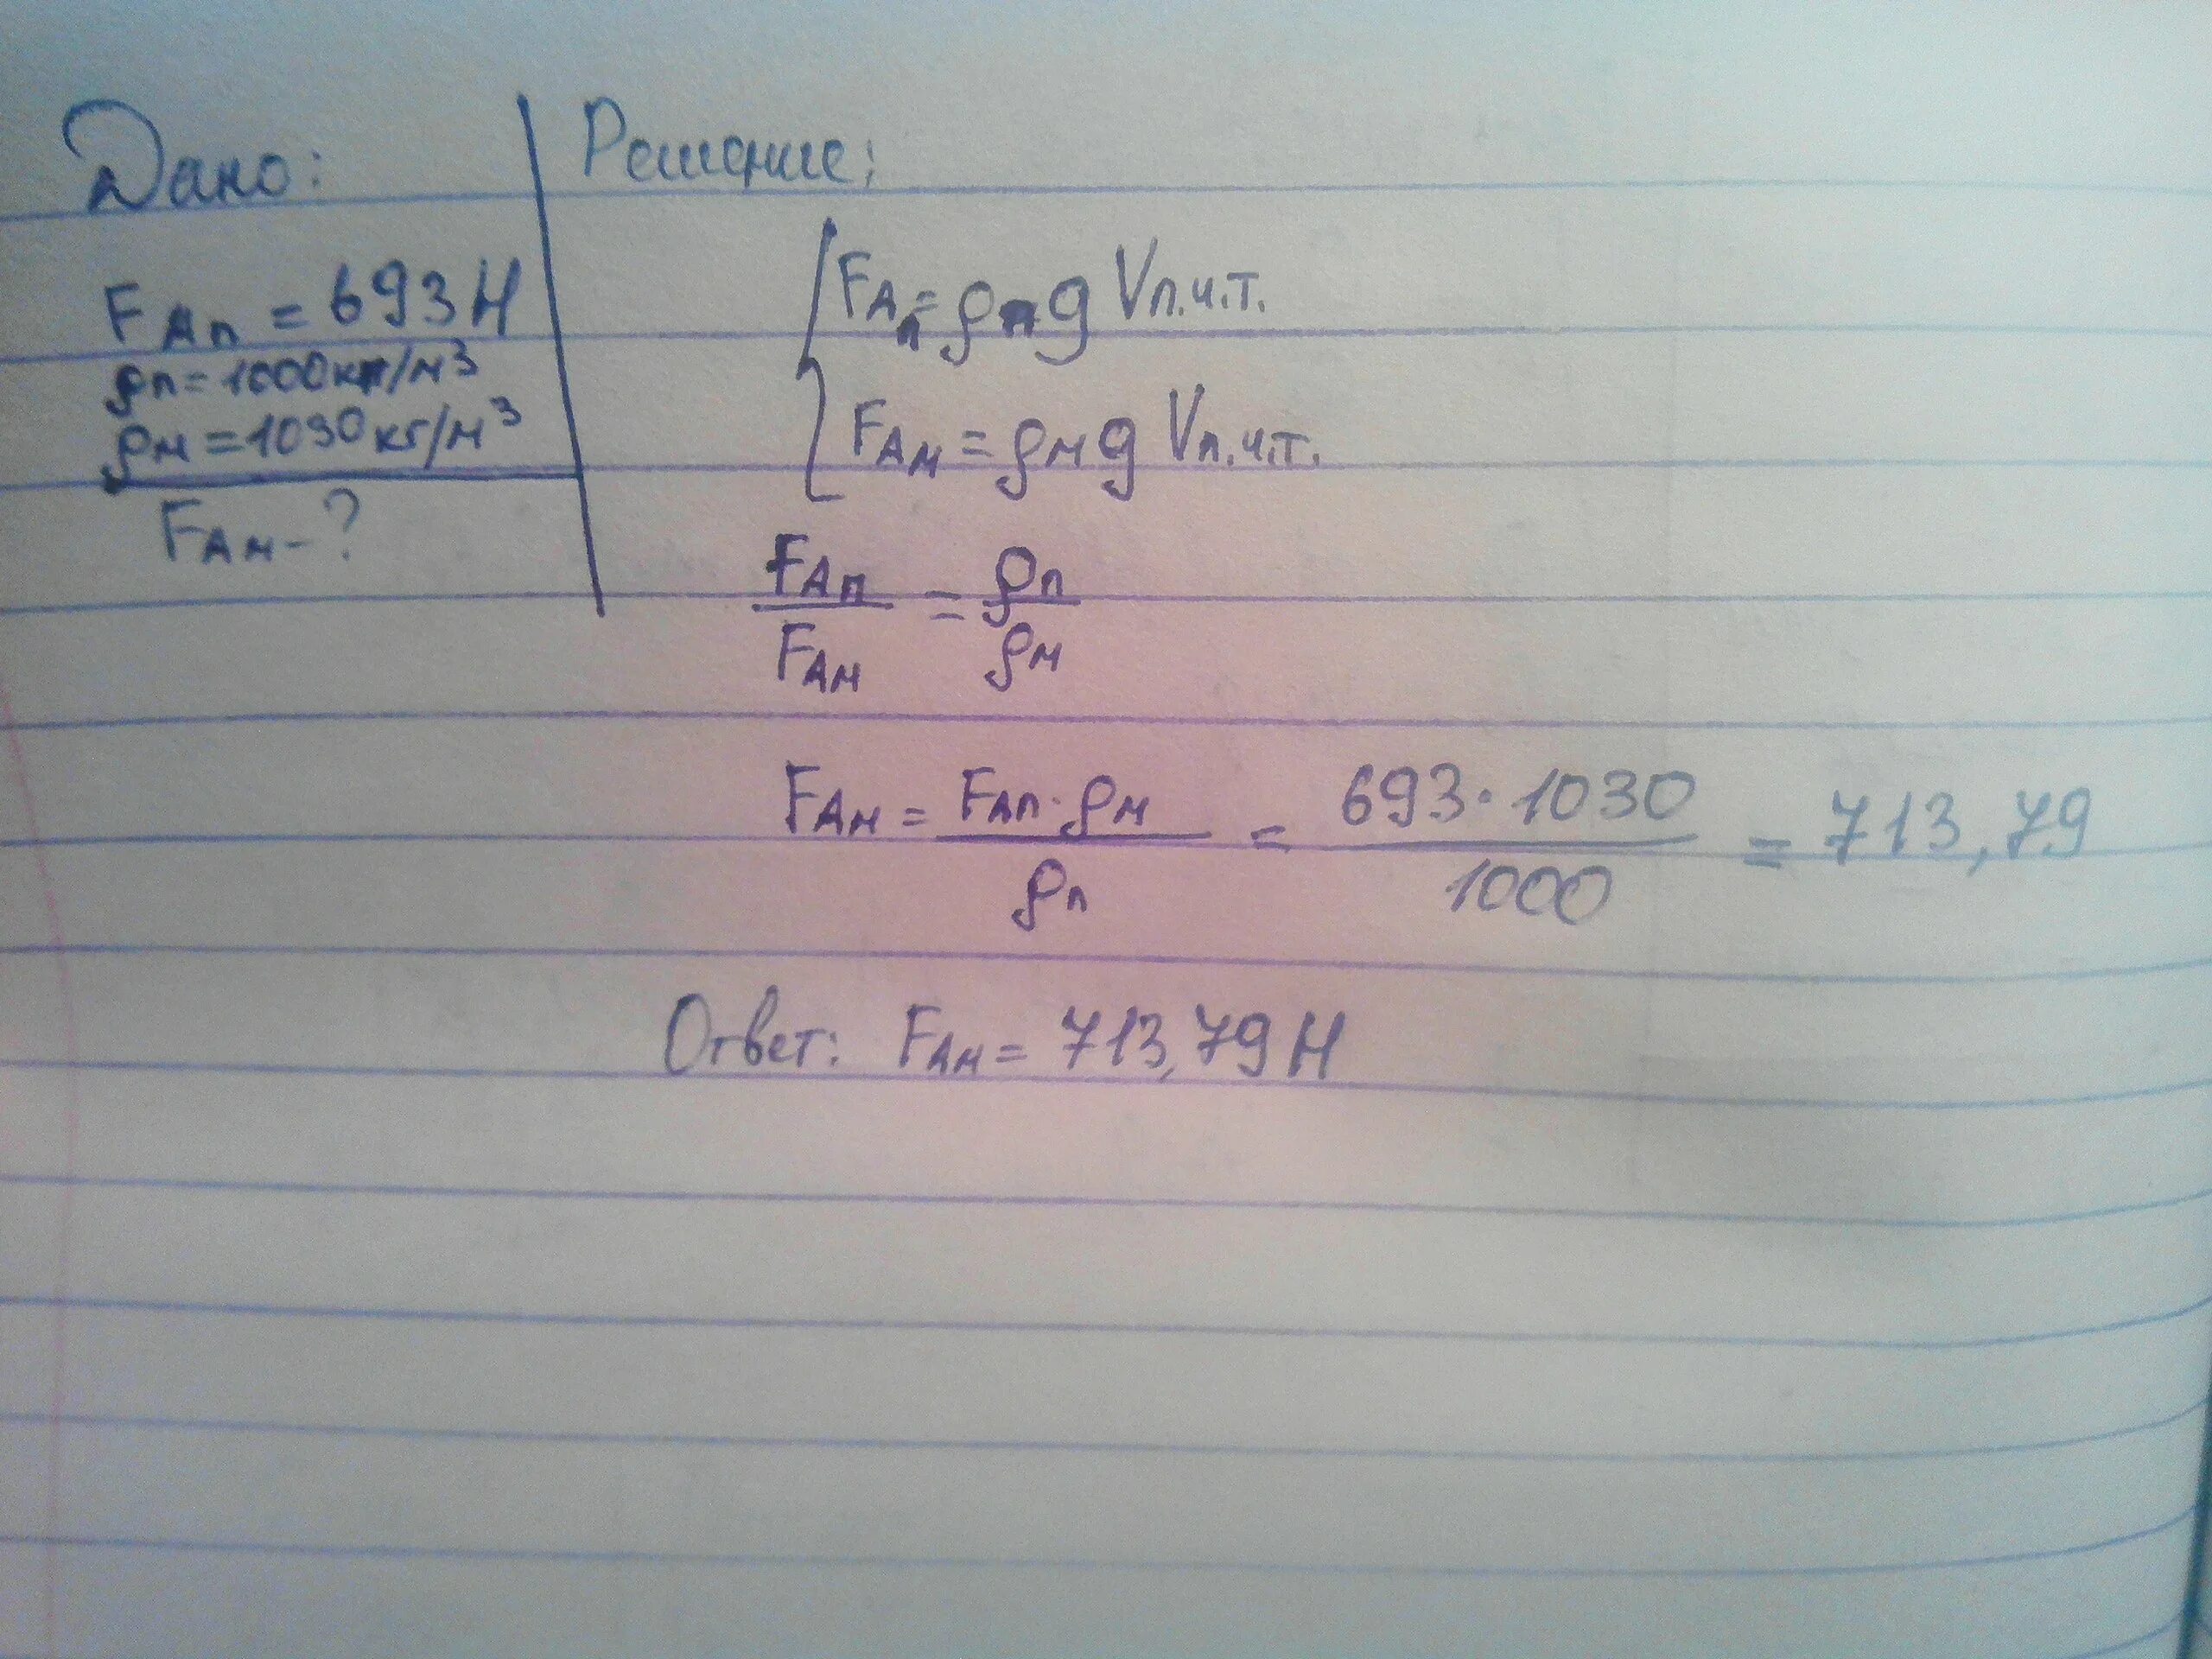 Дано:
F_Aп = 693Н
ρп = 1000кг/м³
ρм = 1030кг/м³
F_Aм - ?
Решение:
F_Aп = ρп g Vп.ч.т.
F_Aм = ρм g Vп.ч.т.
F_Aп / F_Aм = ρп / ρм
F_Aм = F_Aп · ρм / ρп = 693 · 1030 / 1000 = 713,79
Ответ: F_Aм = 713,79 Н